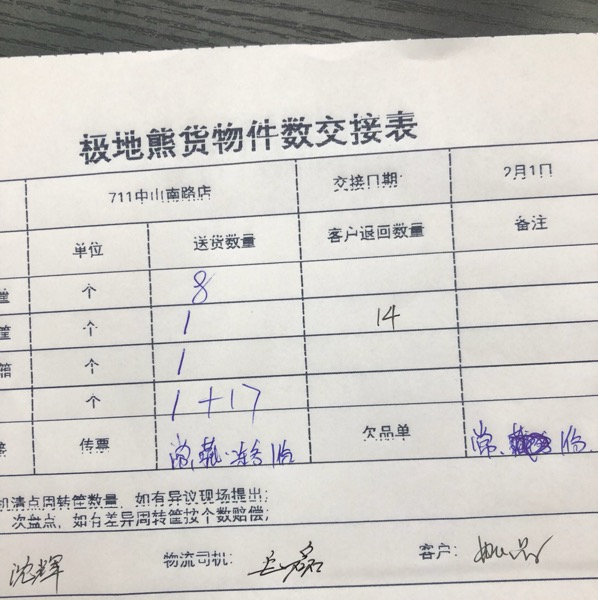 极地熊货物件数交接表
711中山南路店 交接日期: 2月1日
单位 送货数量 客户退回数量 备注
筐 个 8
筐 个 1 14
箱 个 1
个 1+17
传票 常 临 欠品单 常 临
机清点周转筐数量，如有异议现场提出；
次盘点，如有差异周转筐按个数赔偿；
沈辉 物流司机: 客户: